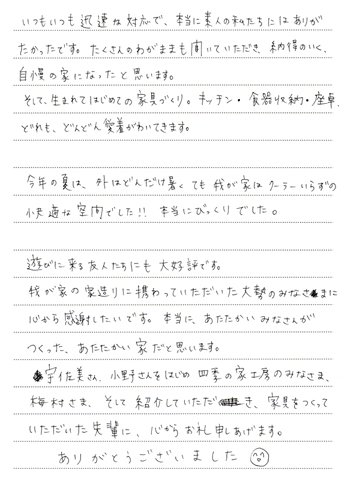 いつもいつも迅速な対応で、本当に素人の私たちにはありが
たかったです。たくさんのわがままも聞いていただき、納得のいく、
自慢の家になったと思います。
そして、生まれてはじめての家具づくり。キッチン・食器収納・座卓、
どれも、どんどん愛着がわいてきます。
今年の夏は、外はどんだけ暑くても我が家はクーラーいらずの
快適な空間でした!! 本当にびっくりでした。
遊びに来る友人たちにも大好評です。
我が家の家造りに携わっていただいた大勢のみなさまに
心から感謝したいです。本当に、あたたかいみなさんが
つくった、あたたかい家だと思います。
宇佐美さん、小野さんをはじめ四季の家工房のみなさま、
梅村さま、そして紹介していただき、家具をつくって
いただいた先輩に、心からお礼申しあげます。
ありがとうございました